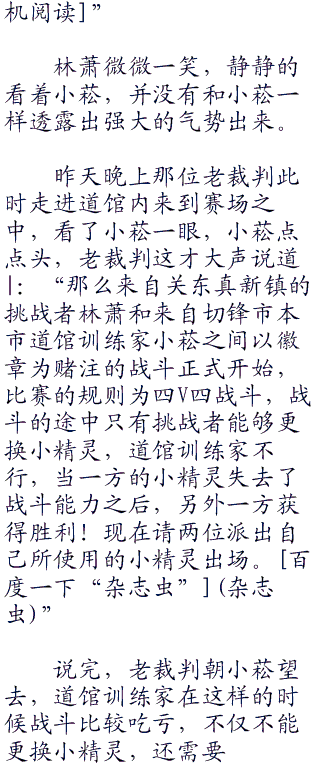 机阅读]”
林萧微微一笑，静静的
看着小菘，并没有和小菘一
样透露出强大的气势出来。
昨天晚上那位老裁判此
时走进道馆内来到赛场之
中，看了小菘一眼，小菘点
点头，老裁判这才大声说道
|：“那么来自关东真新镇的
挑战者林萧和来自切锋市本
市道馆训练家小菘之间以徽
章为赌注的战斗正式开始，
比赛的规则为四V四战斗，战
斗的途中只有挑战者能够更
换小精灵，道馆训练家不
行，当一方的小精灵失去了
战斗能力之后，另外一方获
得胜利！现在请两位派出自
己所使用的小精灵出场。[百
度一下“杂志虫”](杂志
虫)”
说完，老裁判朝小菘望
去，道馆训练家在这样的时
候战斗比较吃亏，不仅不能
更换小精灵，还需要